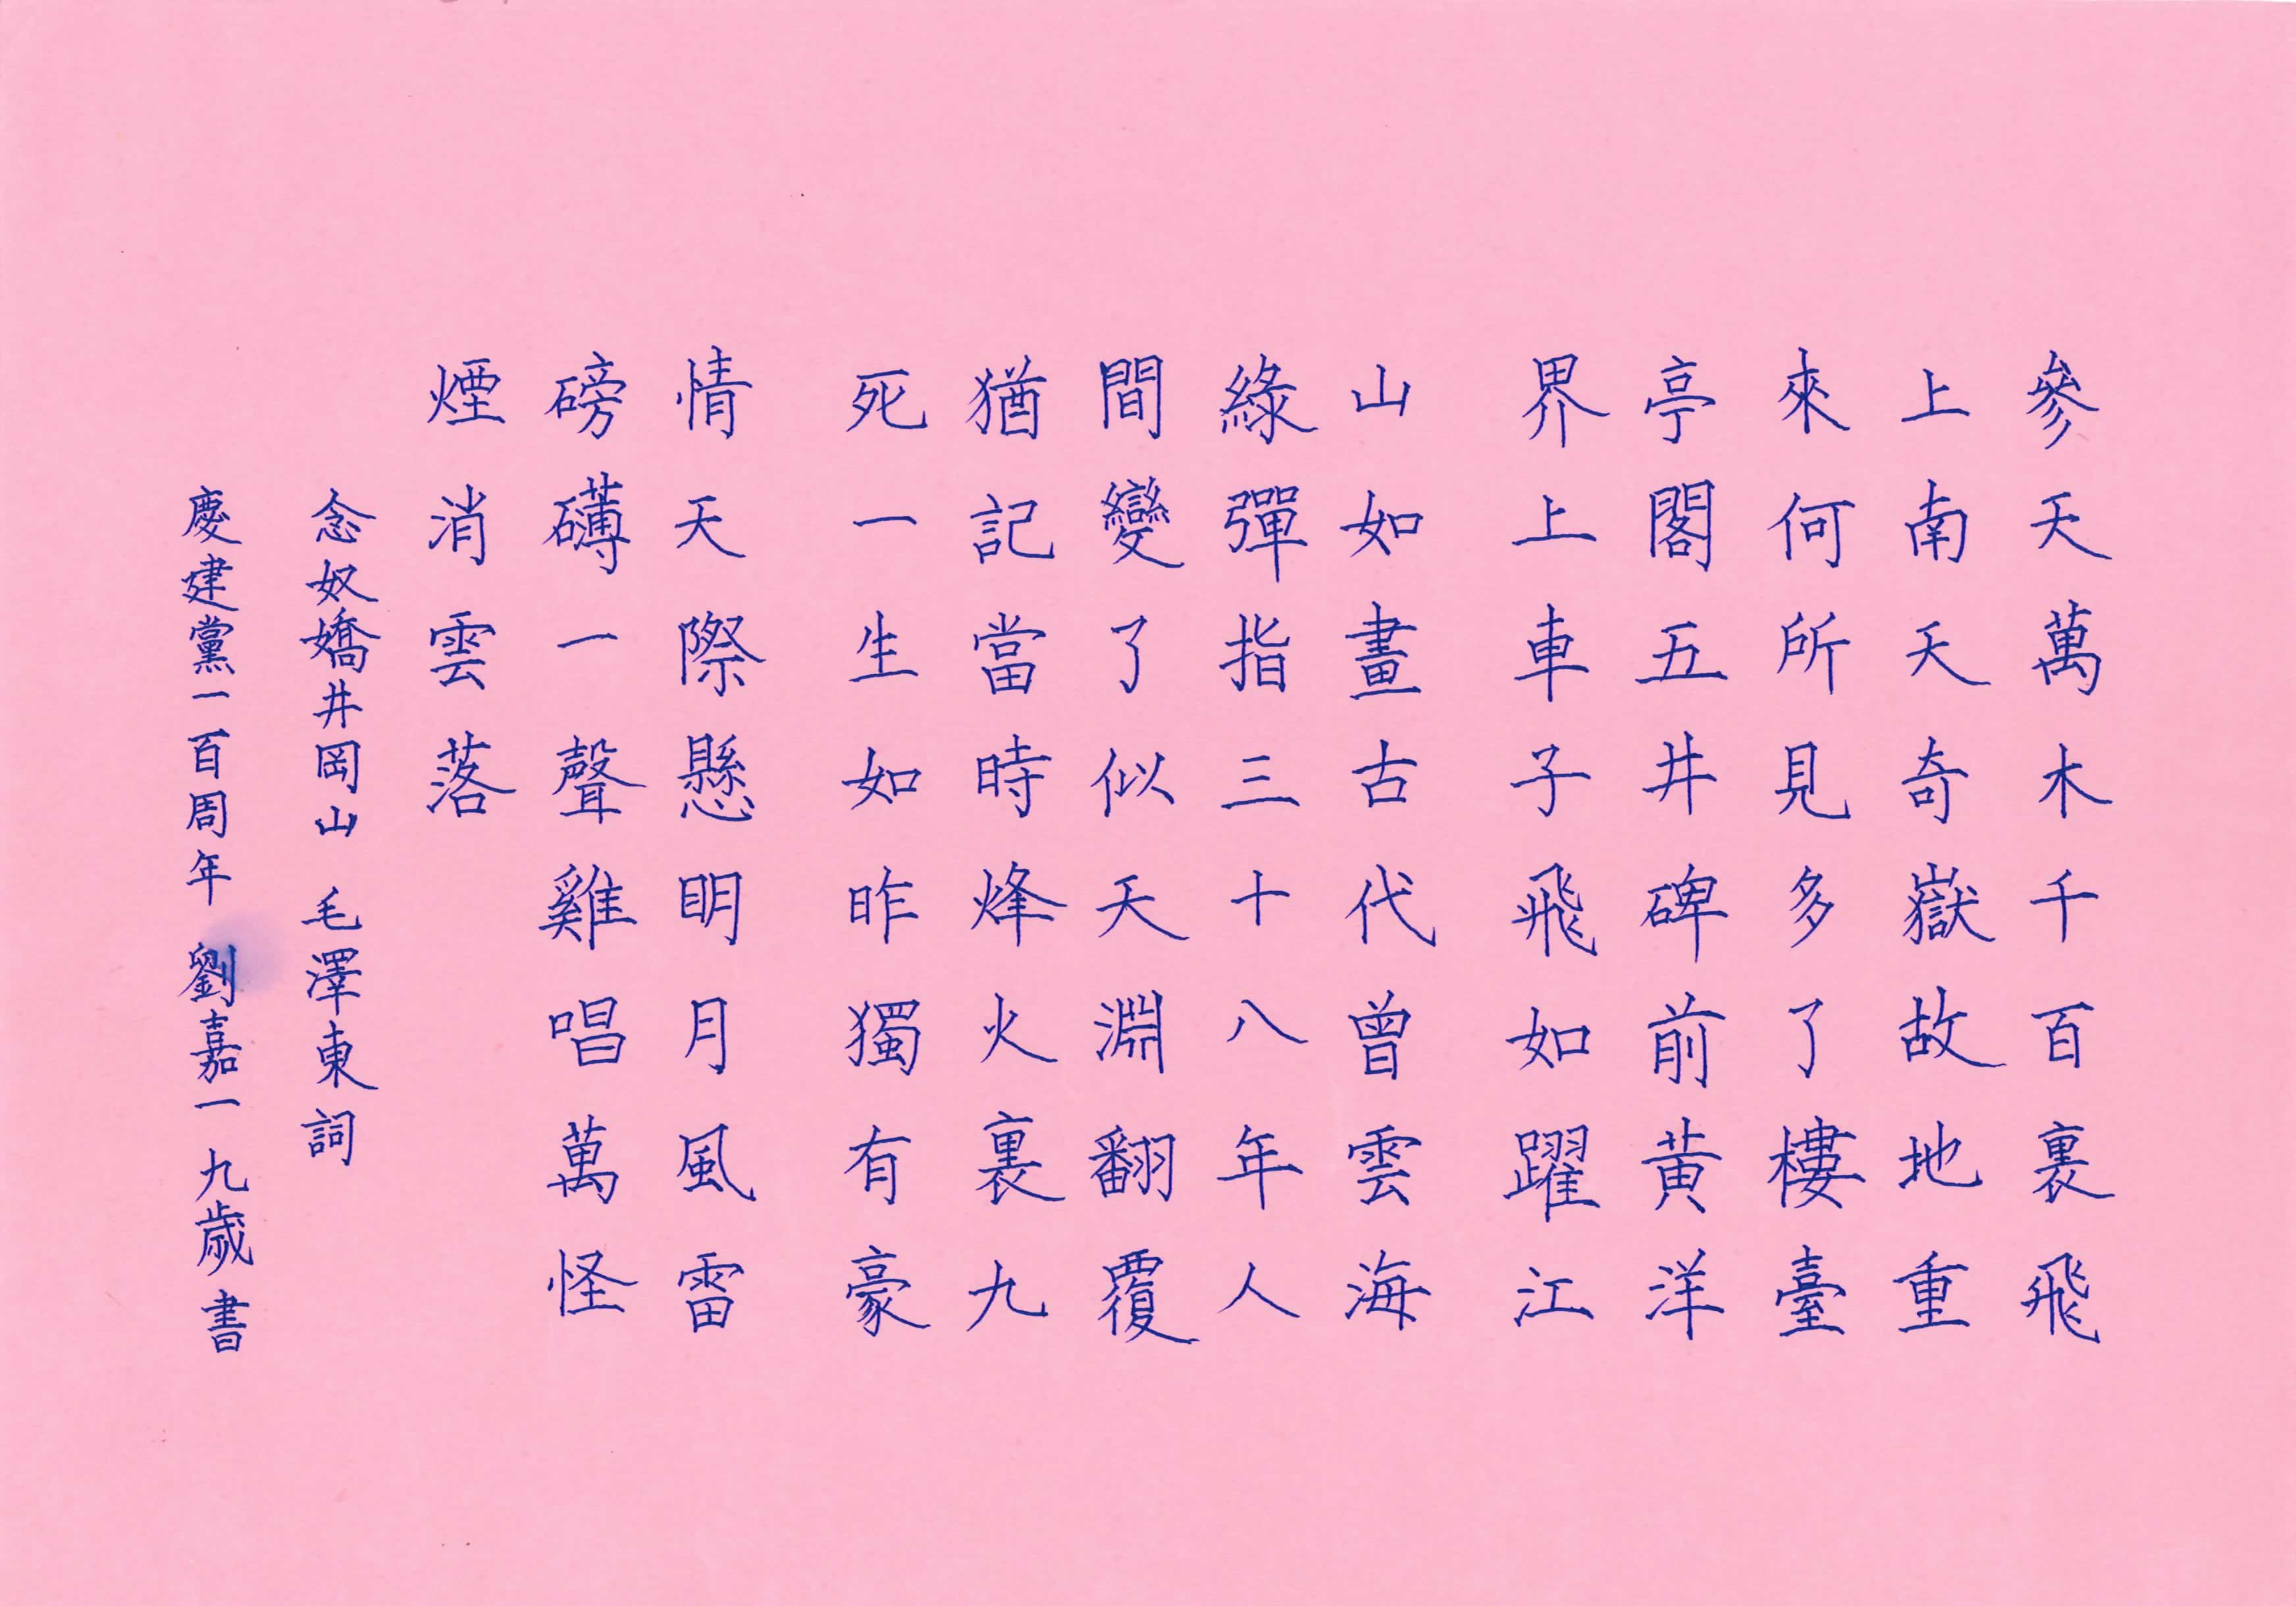 參天萬木千百裏飛
上南天奇嶽故地重
來何所見多了樓臺
亭閣五井碑前黄洋
界上車子飛如躍江
山如畫古代曾雲海
綠彈指三十八年人
間變了似天淵翻覆
猶記當時烽火裏九
死一生如昨獨有豪
情天際懸明月風雷
磅礴一聲雞唱萬怪
煙消雲落
念奴嬌井岡山 毛澤東詞
慶建黨一百周年 劉嘉一九歲書